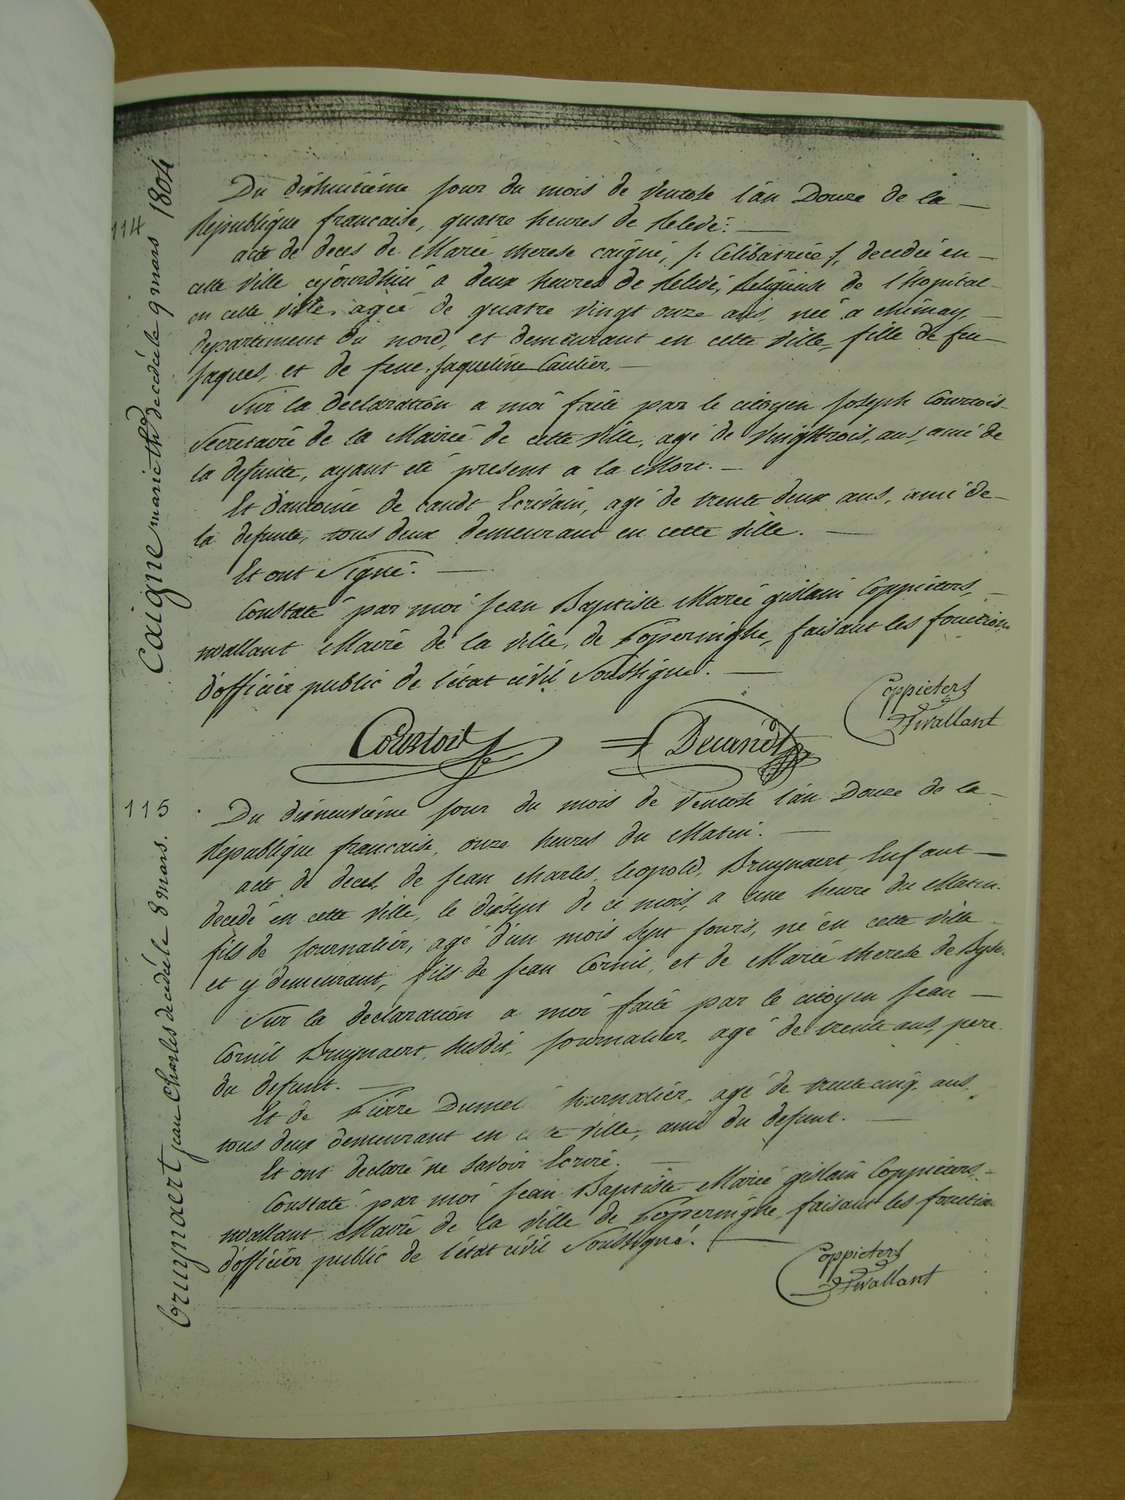 114
caigne marie thé decédée le 9 mars 1804
Du dixhuitieme jour du mois de Ventose l'an Douze de la —
Republique francaise, quatre heures de Relevé. —
acte de deces de Marie therese caigné, /: Celibatrice :/, decedée en —
cette Ville cejourdhui a deux heures de Relevé, Religieuse de l'Hopital
en cette Ville, agée de quatre Vingt onze ans, née a chimay, —
departement du nord, et demeurant en cette Ville, fille de feu —
Jaques, et de feue Jaqueline Caulier, —
Sur la declaration a moi faite par le citoyen Joseph Courtois
Secretaire de la Mairie de cette Ville, agé de Vingttrois ans, ami de
la defunte, ayant eté present a la Mort. —
Et d'antoine de candt Ecrivain, agé de trente deux ans, ami de —
la defunte, tous deux demeurant en cette Ville. —
Et ont Signé. —
Constaté par moi Jean Baptiste Marie gislain Coppieters, —
wallant Maire de la Ville, de Poperinghe, faisant les fonctions
d'officier public de l'état civil Soussigné. —
Coppieters
twallant
Courtois
Decandt
115
bruynaert jean Charles decédé le 8 mars.
Du dixneuvieme jour du mois de Ventose l'an Douze de la —
Republique francaise, onze heures du Matin. —
acte de deces de Jean charles Leopold, Bruynaert, Enfant —
decedé en cette Ville, le dixsept de ce mois, a une heure du Matin.
fils de Journalier, agé d'un mois sept jours, né en cette Ville
et y demeurant, fils de Jean Cornil, et de Marie therese de
Sur la declaration a moi faite par le citoyen Jean —
Cornil Bruynaert, susdit, Journalier, agé de trente ans, pere
du defunt. —
Et de Pierre Journalier, agé de trente cinq ans,
tous deux demeurant en cette Ville, ami du defunt. —
Et ont declaré ne savoir Ecrire. —
Constaté par moi Jean Baptiste Marie gislain Coppieters —
wallant Maire de la Ville de Poperinghe, faisant les fonctions
d'officier public de l'état civil Soussigné. —
Coppieters
twallant